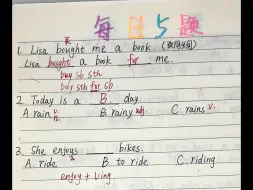 每日5题
1. Lisa bought me a book. (改同义句)
Lisa bought a book for me.
buy sb sth
buy sth for sb
2. Today is a B day.
A. rain v. n. B. rainy adj. C. rains v.
3. She enjoys ____ bikes.
A. ride B. to ride C. riding
enjoy + Ving.